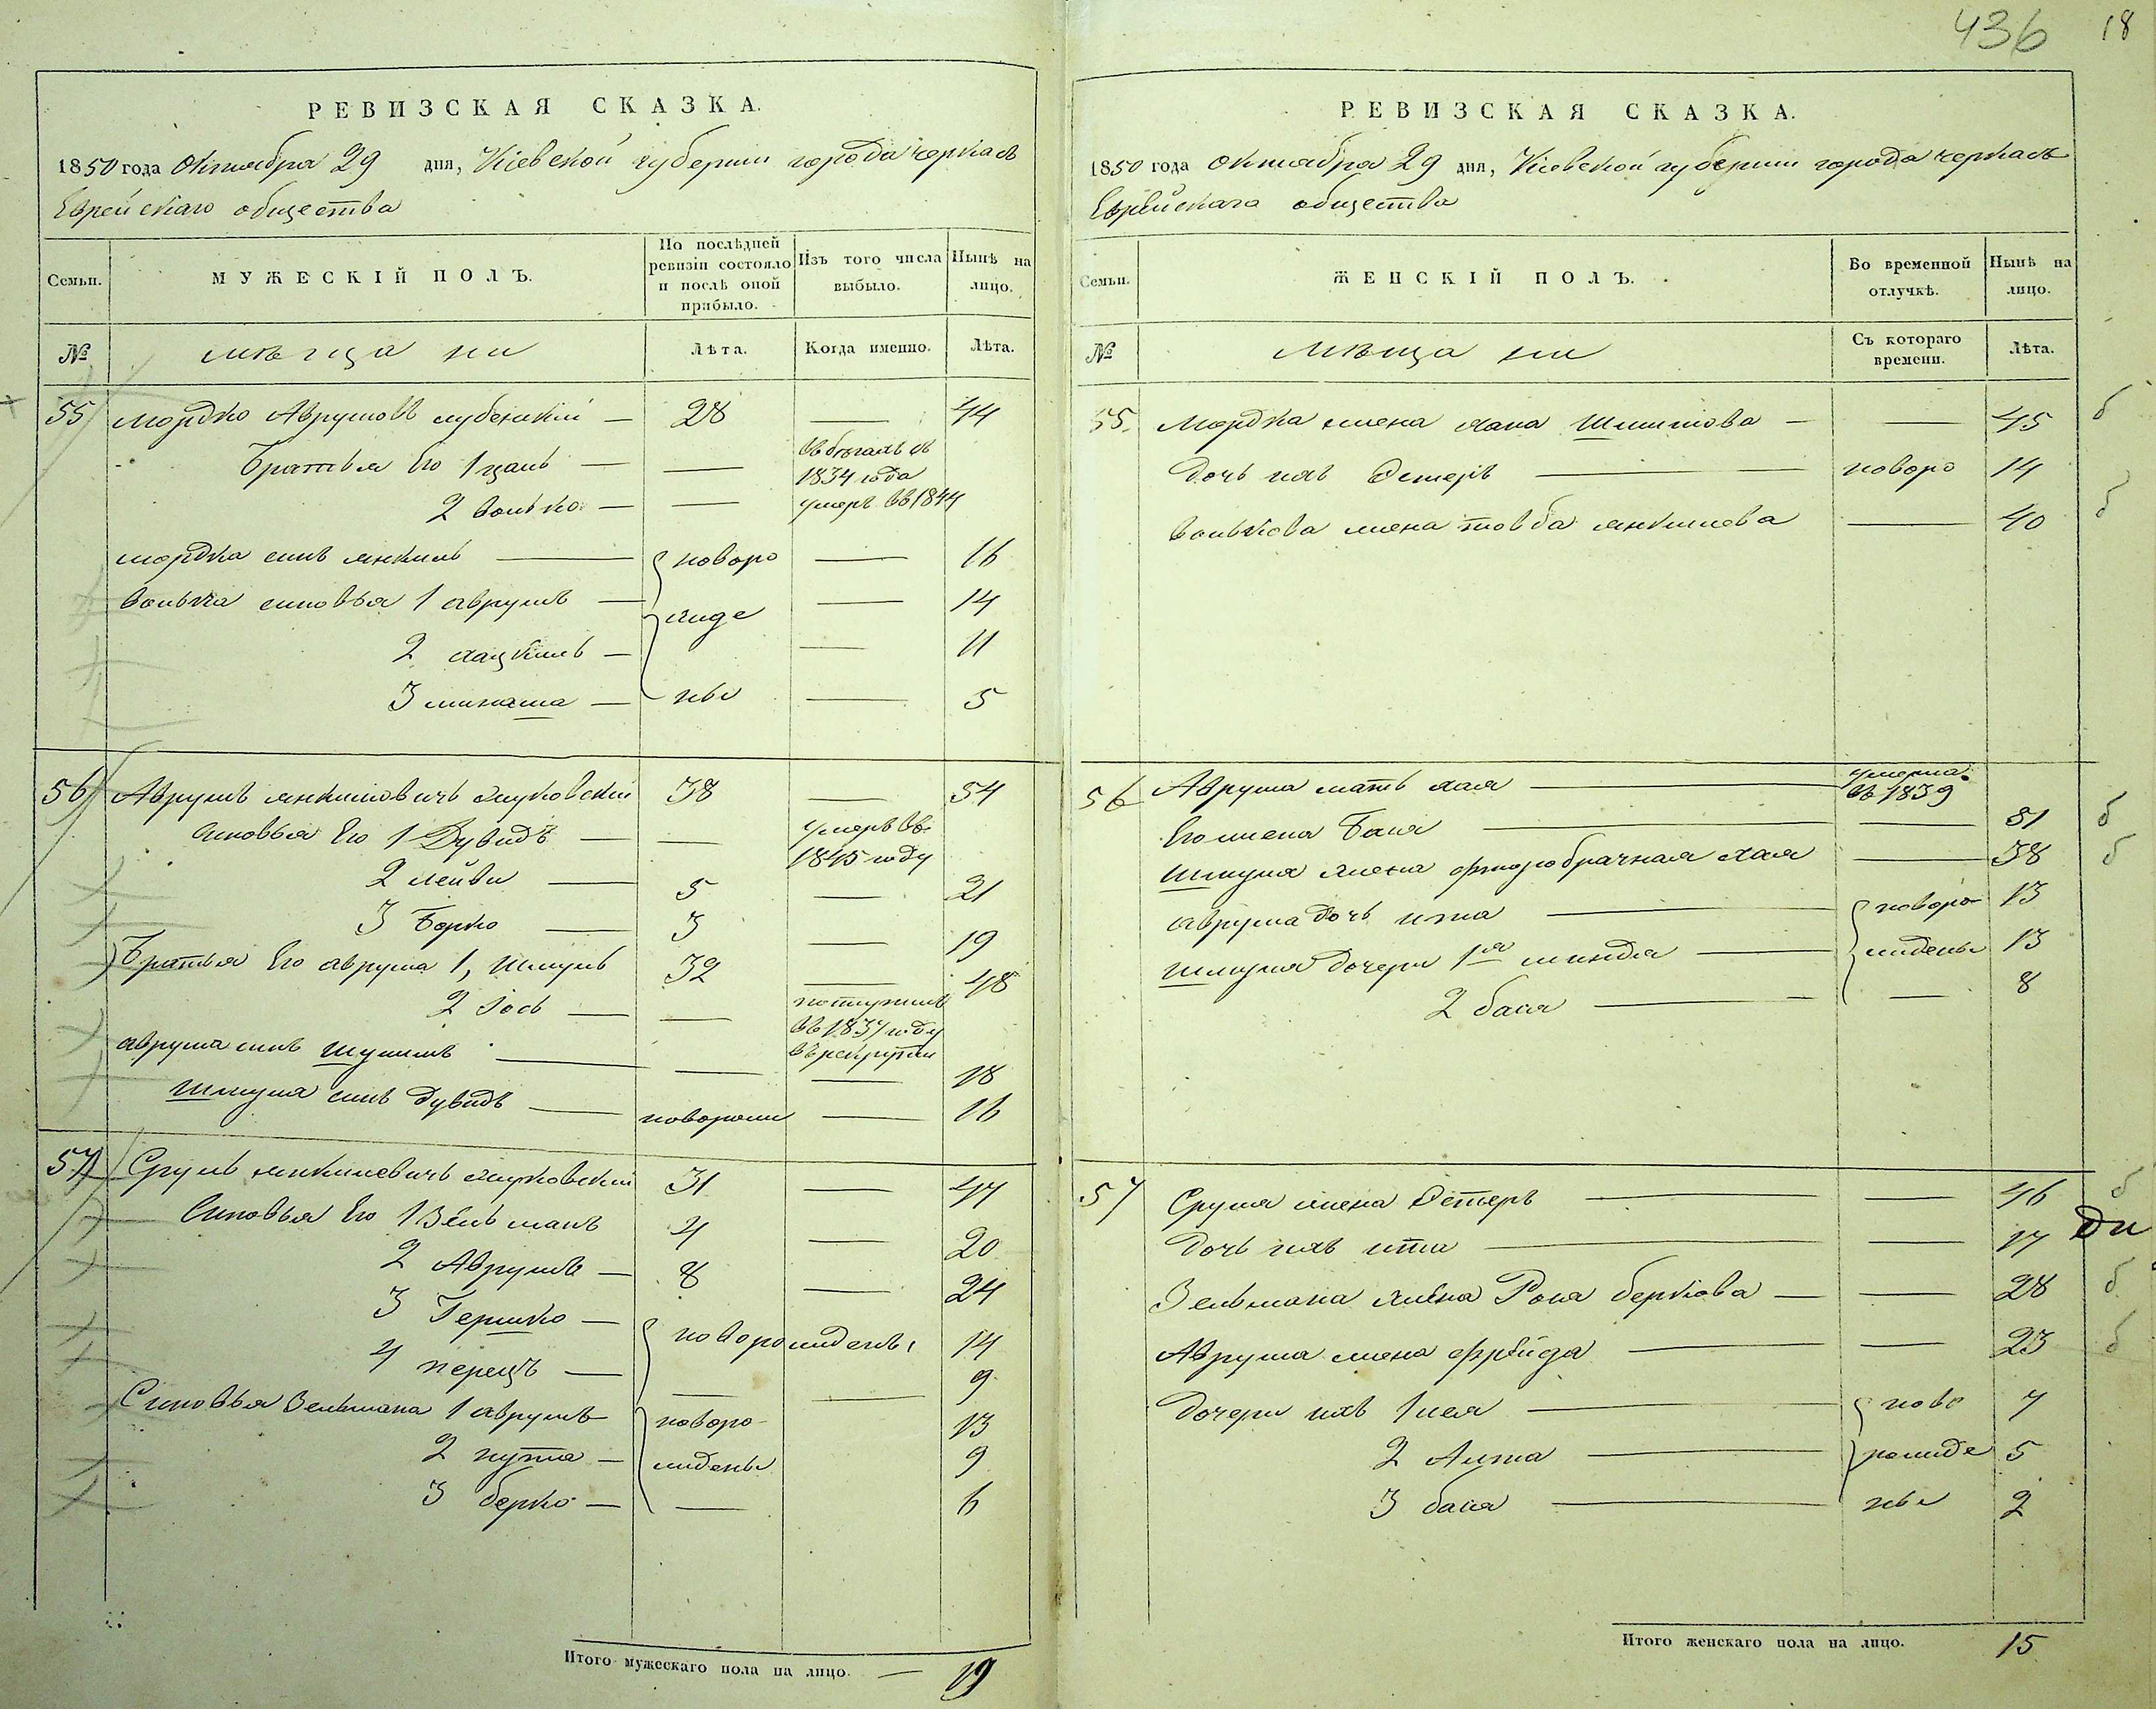 436 18
РЕВИЗСКАЯ СКАЗКА.
1850 года Октября 29 дня, Кіевской губерніи города Черкасъ
Еврейскаго общества
Семьи. МУЖЕСКІЙ ПОЛЪ. По послѣдней ревизіи состояло и послѣ оной прибыло. Изъ того числа выбыло. Нынѣ на лицо.
№ мѣщани Лѣта. Когда именно. Лѣта.
55 Мордко Аврумовъ — 28 — 44
Братья Его 1 — — въ бѣгахъ съ 1834 года
2 Волько — — умеръ въ 1844
мордка синъ янкиль — новоро — 16
волька синовья 1 аврумъ — жде — 14
2 хацкиль — — 11
3 минаша — ны — 5
56 Аврумъ янкиловичъ 38 — 54
синовья Его 1 Дувидъ — — умеръ въ 1845 году
2 лейви — 5 — 21
3 Борко — 3 — 19
Братья Его аврума 1, шмуль 32 — 48
2 Іось — — поступилъ въ 1837 году въ рекруты
аврума синъ — — — 18
шмуля синъ дувидъ —новорожи — 16
57 Сруль янкилевичъ 31 — 47
Синовья Его 1 Зельманъ 4 — 20
2 Аврумъ — 8 — 24
3 Гершко — новорожденъ 14
4 перецъ — — — 9
Синовья Зельмана 1 аврумъ новоро 13
2 нута — жdены 9
3 берко — — 6
Итого мужескаго пола на лицо. — 19
РЕВИЗСКАЯ СКАЗКА.
1850 года октября 29 дня, Кіевской губерніи города черкасъ
Еврейскага общества
Семьи. ЖЕНСКІЙ ПОЛЪ. Во временной отлучкѣ. Нынѣ на лицо.
№ мѣщани Съ котораго времени. Лѣта.
55 Мордка жена хана — — 45 б
дочь ихъ Эстеръ — новоро 14
волькова жена товба янкилева — 40 б
56 Аврума мать хая — умерла въ 1839
Его жена Бася — — 51 б
Шмуля жена фторобрачная хая — 38 б
аврума дочь ита — новоро 13
шмуля дочери 1я минда — жdены 13
2 бася — — 8
57 Сруля жена Эстеръ — — 46 б
дочь ихъ ита — — 17 Ди
Зельмана жена Роня беркова — — 28 б
Аврума жена фрейда — — 23 б
дочери ихъ 1 — ново 7
2 Алта — рожде 5
3 бася — ны 2
Итого женскаго пола на лицо. 15